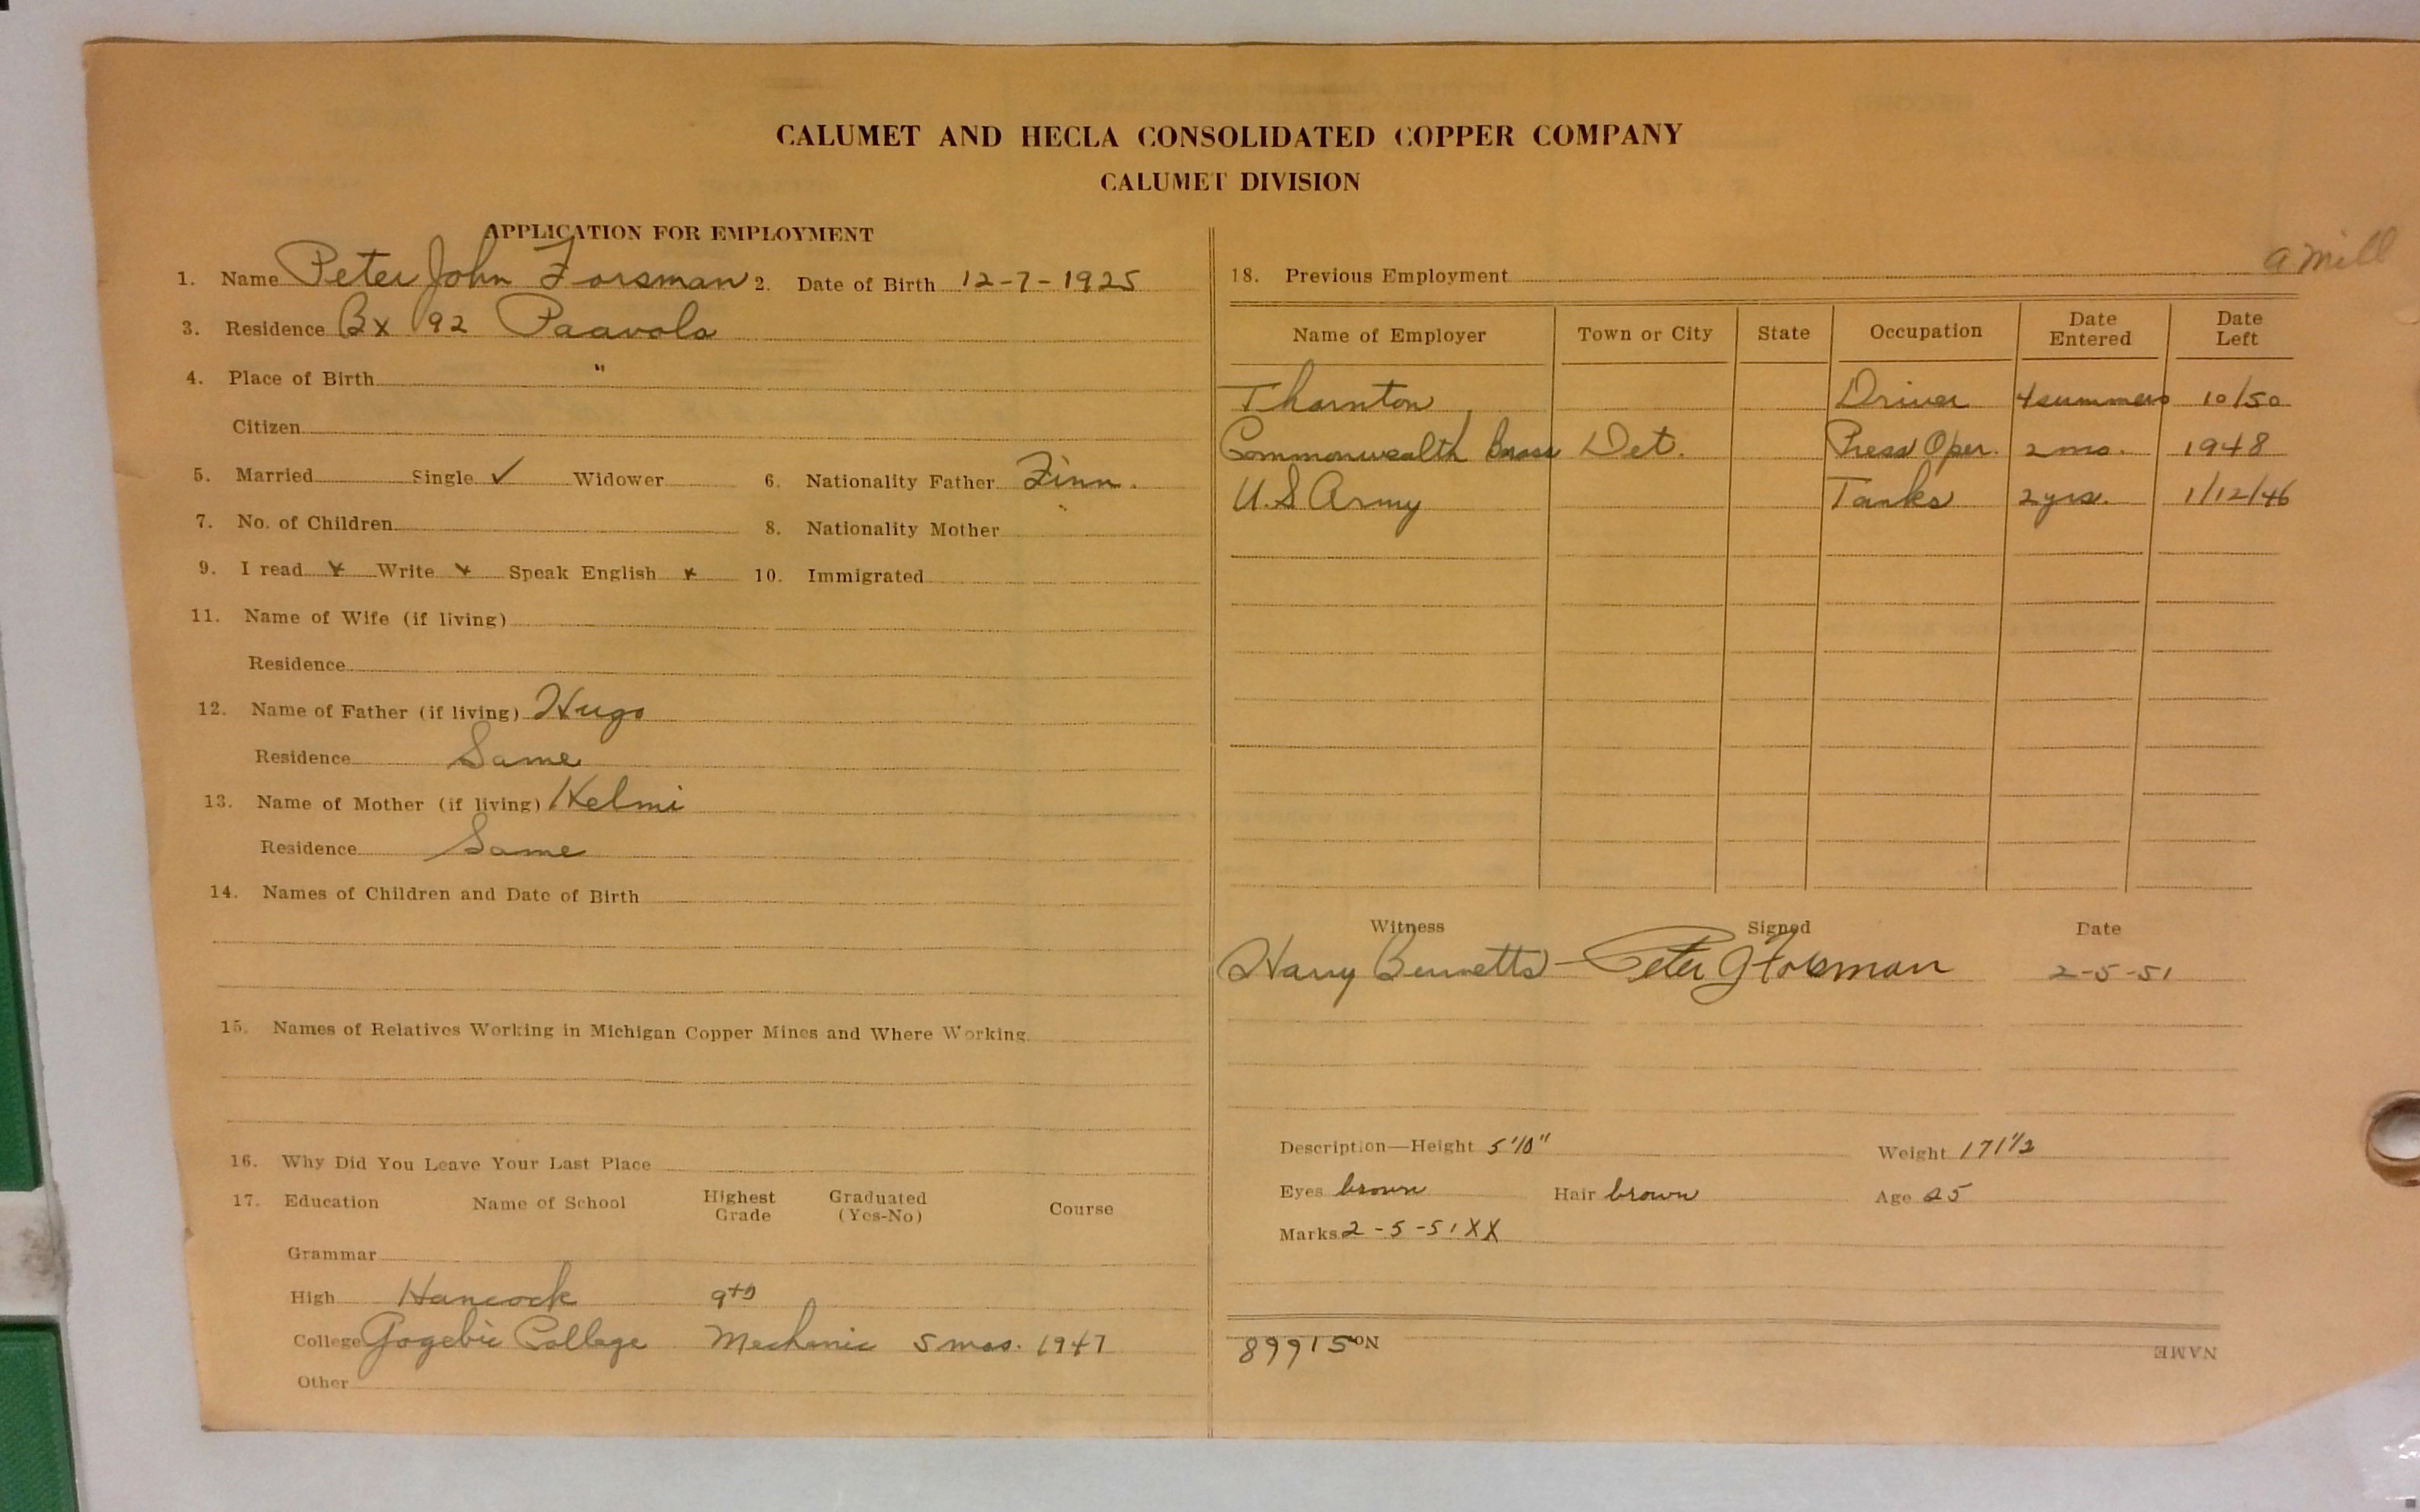 CALUMET AND HECLA CONSOLIDATED COPPER COMPANY
CALUMET DIVISION
APPLICATION FOR EMPLOYMENT
1. Name Peter John Forsman 2. Date of Birth 12-7-1925
3. Residence Bx 92 Paavola
4. Place of Birth "
Citizen
5. Married Single ✓ Widower 6. Nationality Father Finn.
7. No. of Children 8. Nationality Mother "
9. I read x Write x Speak English x 10. Immigrated
11. Name of Wife (if living)
Residence
12. Name of Father (if living) Hugo
Residence Same
13. Name of Mother (if living) Helmi
Residence Same
14. Names of Children and Date of Birth
15. Names of Relatives Working in Michigan Copper Mines and Where Working
16. Why Did You Leave Your Last Place
17. Education Name of School Highest Grade Graduated (Yes-No) Course
Grammar
High Hancock 9th
College Gogebic College Mechanic 5 mos. 1947
Other
18. Previous Employment
a mill
Name of Employer Town or City State Occupation Date Entered Date Left
Thornton Driver 4 summers 10/50
Commonwealth Brass Det. Press Oper. 2 mo. 1948
U.S Army Tanks 2 yrs. 1/12/46
Witness Signed Date
Harry Bennetts Peter J Forsman 2-5-51
Description—Height 5'10" Weight 171 1/2
Eyes brown Hair brown Age 25
Marks 2-5-51 XX
89915 No. NAME